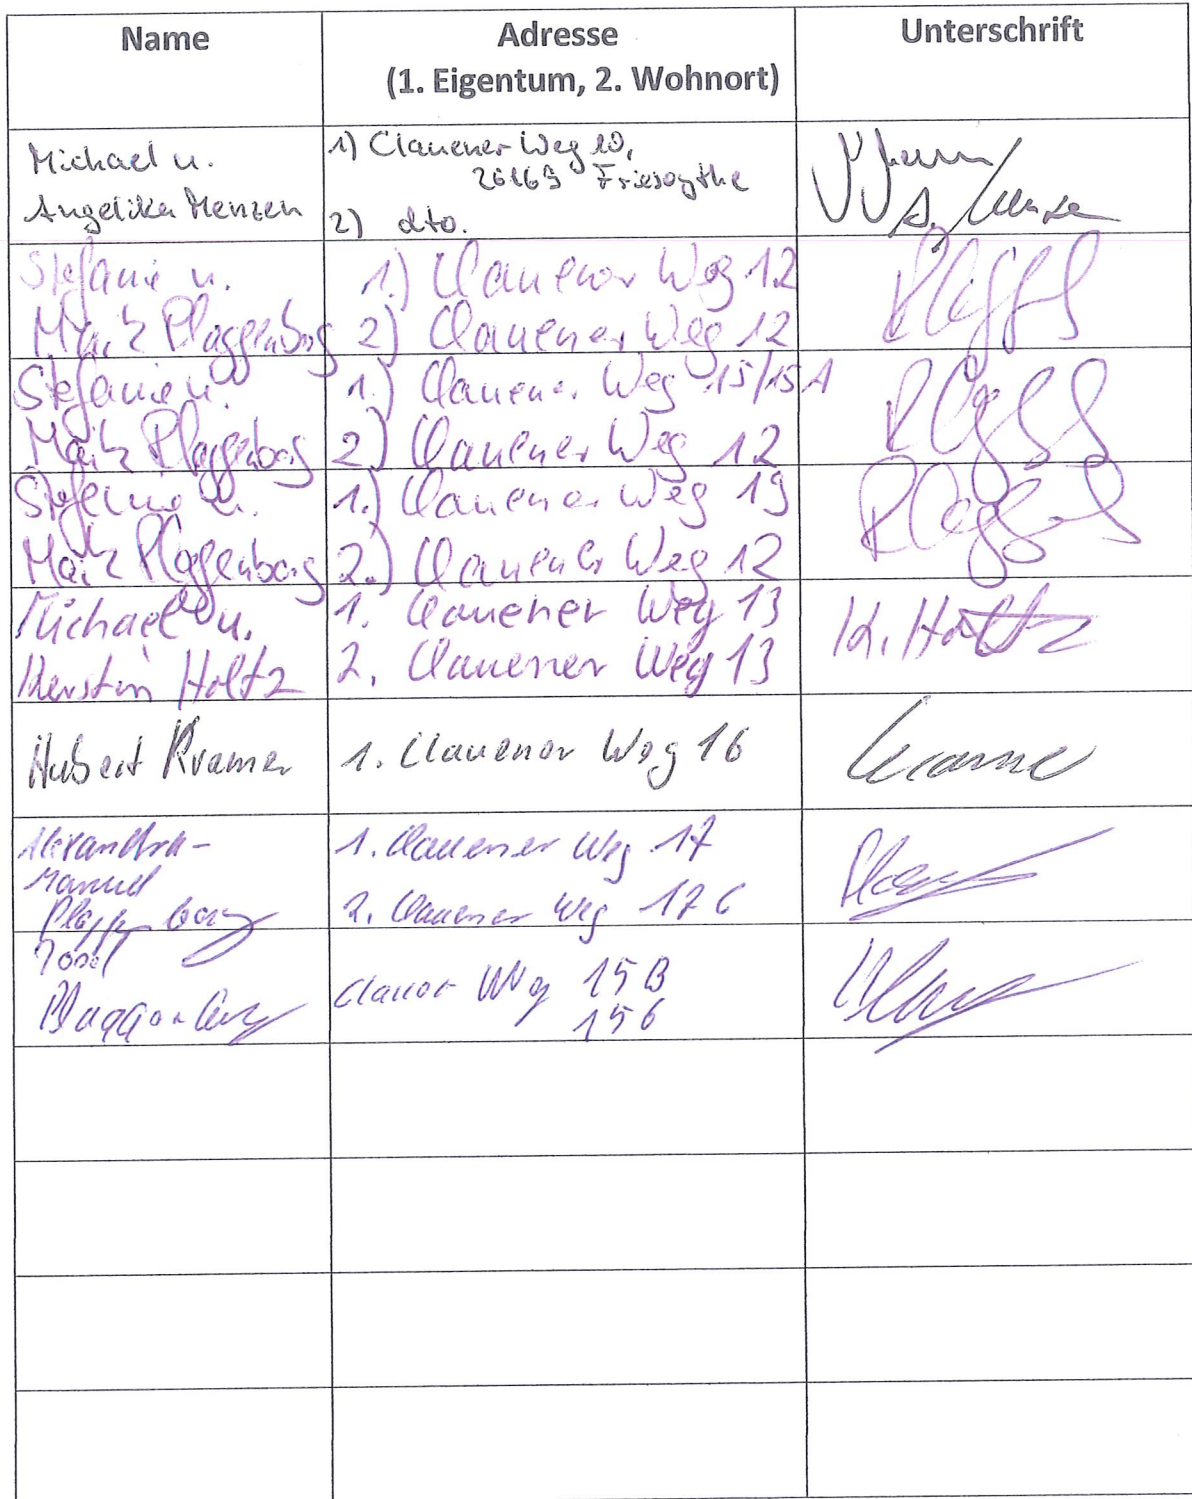 Name
Adresse
(1. Eigentum, 2. Wohnort)
Unterschrift
Michael u.
Angelika Menzen
1) Clauener Weg 10,
26169 Friesoythe
2) dto.
Stefanie u.
Maik Plaggenborg
1.) Clauener Weg 12
2) Clauener Weg 12
Stefanie u.
Maik Plaggenborg
1.) Clauener Weg 15/15A
2) Clauener Weg 12
Stefanie u.
Maik Plaggenborg
1.) Clauener Weg 19
2.) Clauener Weg 12
Michael u.
Kerstin Holtz
1. Clauener Weg 13
2. Clauener Weg 13
K. Holtz
Hubert Kramer
1. Clauener Weg 16
Alexandra-
Manuel
Plaggenborg
1. Clauener Weg 17
2. Clauener Weg
Josef
Plaggenborg
Weg 15 B